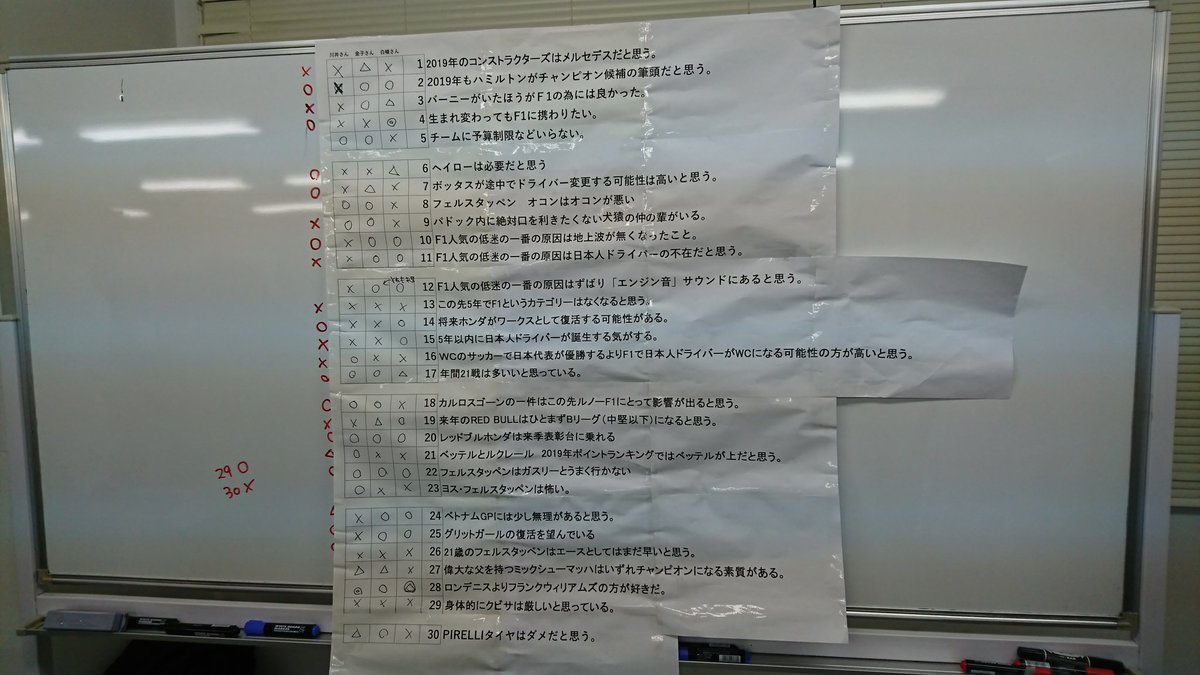 川井さん 金子さん 白幡さん
× △ × 1 2019年のコンストラクターズはメルセデスだと思う。
× ○ ○ 2 2019年もハミルトンがチャンピオン候補の筆頭だと思う。
× ○ △ 3 バーニーがいたほうがF1の為には良かった。
× × ◎ 4 生まれ変わってもF1に携わりたい。
○ ○ × 5 チームに予算制限などいらない。
× × △ 6 ヘイローは必要だと思う
× △ × 7 ボッタスが途中でドライバー変更する可能性は高いと思う。
○ ○ × 8 フェルスタッペン オコンはオコンが悪い
○ ○ × 9 パドック内に絶対口を利きたくない犬猿の仲の輩がいる。
× ○ ○ 10 F1人気の低迷の一番の原因は地上波が無くなったこと。
× ○ ○ 11 F1人気の低迷の一番の原因は日本人ドライバーの不在だと思う。
× ○ ○ 12 F1人気の低迷の一番の原因はずばり「エンジン音」サウンドにあると思う。
× × × 13 この先5年でF1というカテゴリーはなくなると思う。
× × ○ 14 将来ホンダがワークスとして復活する可能性がある。
× × ○ 15 5年以内に日本人ドライバーが誕生する気がする。
○ × × 16 WCのサッカーで日本代表が優勝するよりF1で日本人ドライバーがWCになる可能性の方が高いと思う。
○ ○ △ 17 年間21戦は多いいと思っている。
○ ○ × 18 カルロスゴーンの一件はこの先ルノーF1にとって影響が出ると思う。
× △ ○ 19 来年のRED BULLはひとまずBリーグ（中堅以下）になると思う。
○ ○ ○ 20 レッドブルホンダは来季表彰台に乗れる
○ × × 21 ベッテルとルクレール 2019年ポイントランキングではベッテルが上だと思う。
○ ○ ○ 22 フェルスタッペンはガスリーとうまく行かない
○ × × 23 ヨス・フェルスタッペンは怖い。
× ○ ○ 24 ベトナムGPには少し無理があると思う。
× ○ ○ 25 グリットガールの復活を望んでいる
× × × 26 21歳のフェルスタッペンはエースとしてはまだ早いと思う。
△ △ × 27 偉大な父を持つミックシューマッハはいずれチャンピオンになる素質がある。
◎ ○ ◎ 28 ロンデニスよりフランクウィリアムズの方が好きだ。
× × × 29 身体的にクビサは厳しいと思っている。
△ ○ × 30 PIRELLIタイヤはダメだと思う。
×
○
×
○
○
○
×
○
×
×
○
×
×
○
○
×
○
△
29 ○
30 ×